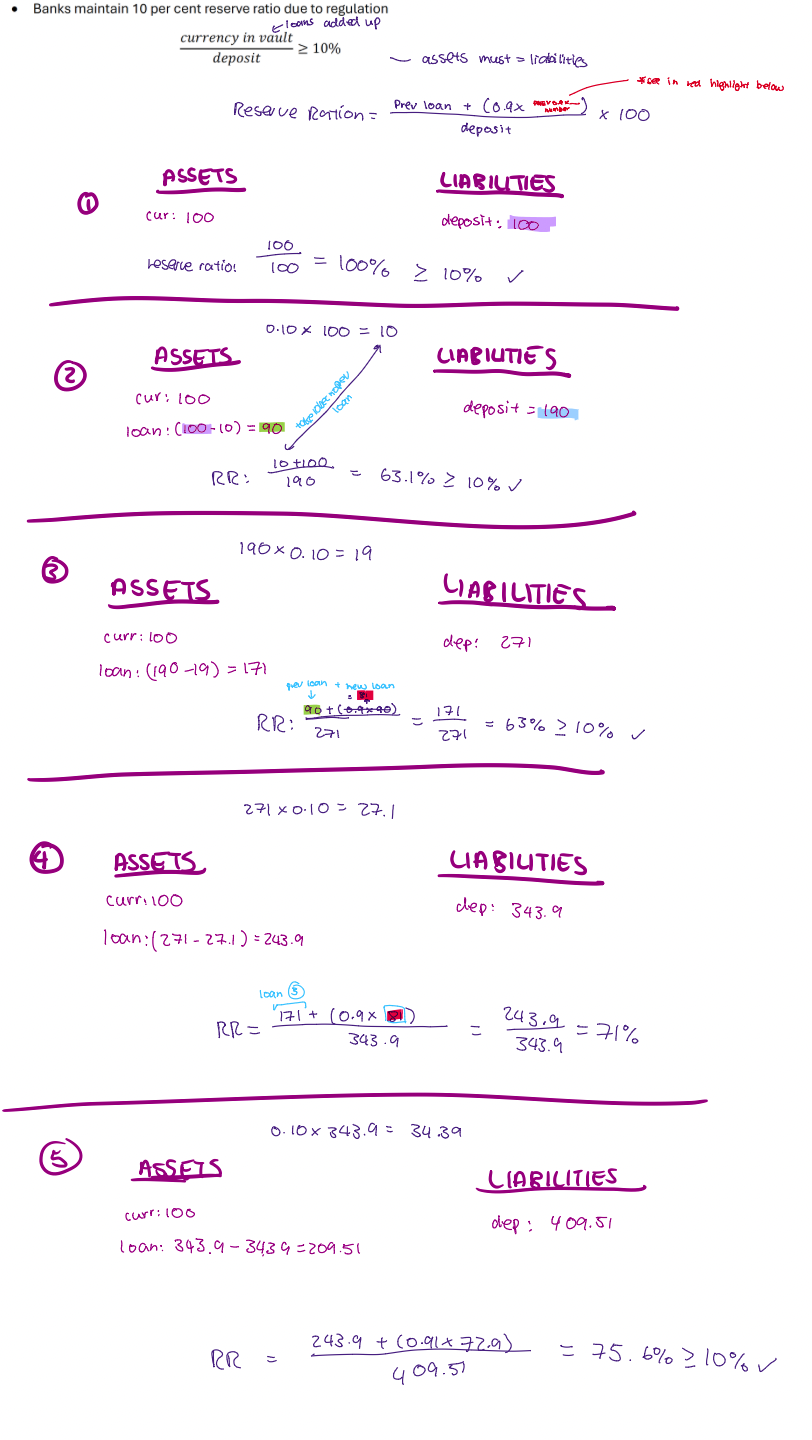 • Banks maintain 10 per cent reserve ratio due to regulation
loans added up
currency in vault / deposit ≥ 10%
— assets must = liabilities
*see in red highlight below
Reserve Ration = Prev loan + (0.9 x number) / deposit x 100
①
ASSETS
LIABILITIES
cur: 100
deposit: 100
reserve ratio: 100 / 100 = 100% ≥ 10% ✓
0.10 x 100 = 10
②
ASSETS
LIABILITIES
cur: 100
deposit = 190
loan: (100-10) = 90
loan
RR: 10+100 / 190 = 63.1% ≥ 10% ✓
190 x 0.10 = 19
③
ASSETS
LIABILITIES
curr: 100
dep: 271
loan: (190-19) = 171
prev loan + new loan
= 81
RR: 90 + (0.9x90) / 271 = 171 / 271 = 63% ≥ 10% ✓
271 x 0.10 = 27.1
④
ASSETS
LIABILITIES
curr: 100
dep: 343.9
loan: (271 - 27.1) = 243.9
loan ③
RR = 171 + (0.9 x 81) / 343.9 = 243.9 / 343.9 = 71%
0.10 x 343.9 = 34.39
⑤
ASSETS
LIABILITIES
curr: 100
dep: 409.51
loan: 343.9 - 343.9 = 209.51
RR = 243.9 + (0.91 x 72.9) / 409.51 = 75.6% ≥ 10% ✓